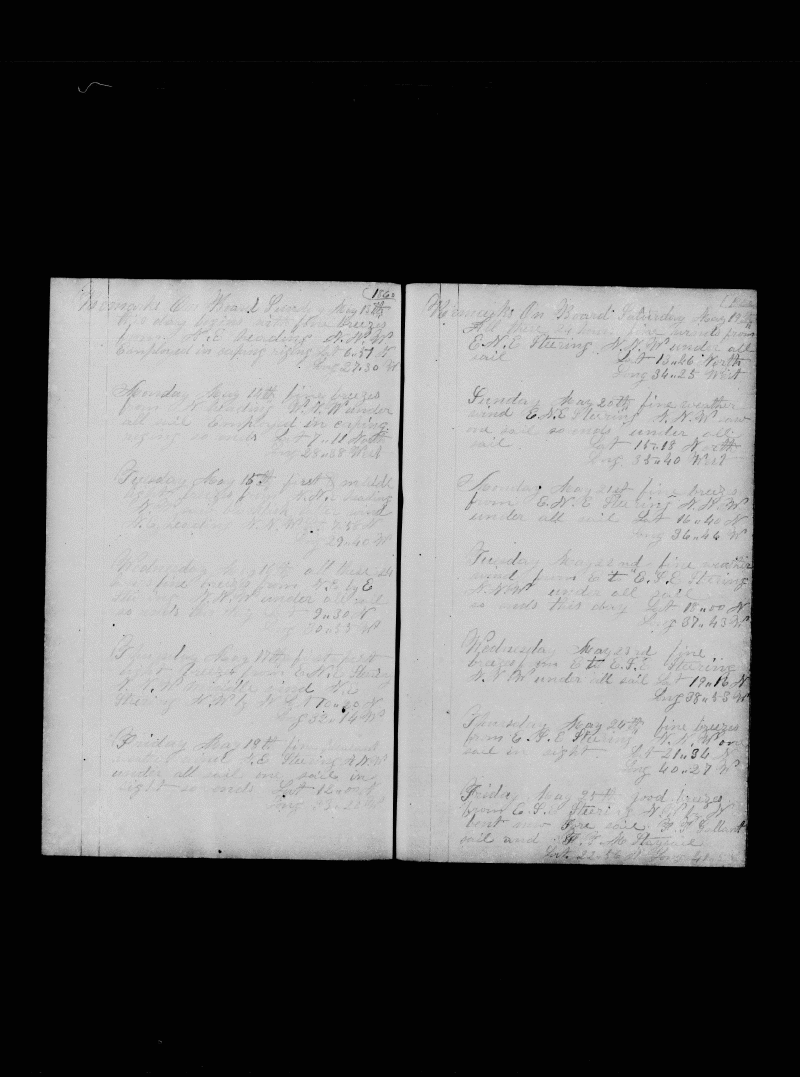 Remarks On Board Sunday May 13th
this day begins with fine breezes
from N.E heading N.N.W
Employed in caping riging Lat 6..51 N
Long 27..30 W
Monday May 14th fine breezes
from N heading W.N.W under
all sail Employed in caping
riging so ends Lat 7..11 North
Long 28..38 West
Tuesday May 15th first & middle
N.N.E heading
wind
N.E heading N.N.W 7..58 N
Long 29..40 W
Wednesday May 16th all these 24
hours fine breezes from N.E by E
Steering N.N.W under all sail
so ends this day Lat 9..30 N
Long 30..55 W
Thursday May 17th first part
light breezes from E.N.E Steering
N.N.W middle wind N.E
Steering N.W by N Lat
Long 32..14 W
Friday May 19th fine pleasant
weather wind N.E Steering N.N.W
under all sail one sail in
sight so ends Lat 12..00 N
Long 33..22 W
Remarks On Board Saturday May 19th
All these 24 hours fine wind from
E.N.E Steering N.N.W under all
sail Lat 13..46 North
Long 34..25 West
Sunday May 20th fine weather
wind E.N.E Steering N.N.W saw
one sail so ends under all
sail Lat 15..18 North
Long 35..40 West
Monday May 21st fine breezes
from E.N.E Steering N.N.W
under all sail Lat 16..40 N
Long 36..44 W
Tuesday May 22nd fine weather
wind from E to E.S.E Steering
N.N.W under all sail
so ends this day Lat 18..00 N
Long 37..43 W
Wednesday May 23rd fine
breezes from E to E.S.E Steering
N.N.W under all sail Lat 19..16 N
Long 38..53 W
Thursday May 24th fine breezes
from E.S.E Steering N.N.W one
sail in sight Lat 21..34 N
Long 40..27 W
Friday May 25th good breezes
from E.S.E Steering N.W by N
bent new Fore sail
sail and
Lat 22..56 N Long 41